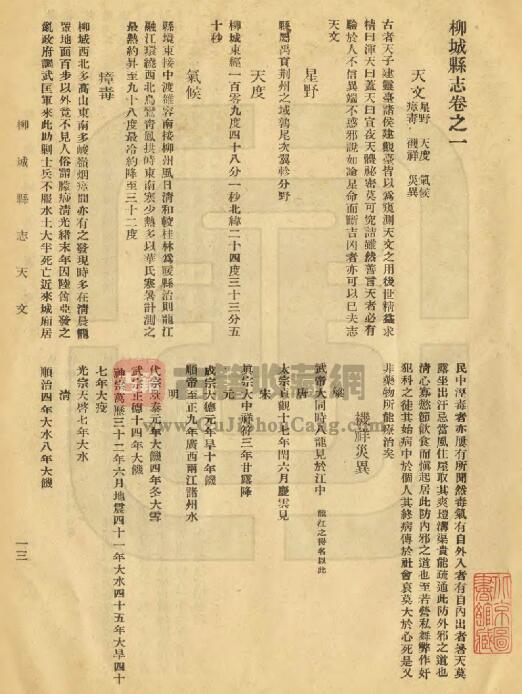 柳城縣志卷之一
天文 星野 天度 氣候
瘴毒 禨祥 災異
古者天子建靈臺諸侯建觀臺皆以爲窺測天文之用後世精益求
精曰渾天曰蓋天曰宣夜天體祕密莫可究詰雖然善言天者必有
驗於人不信異端不惑邪說如論星命而斷吉凶者亦可以已夫志
天文
星野
縣屬禹貢荆州之域鶉尾次翼軫分野
天度
柳城東經一百零九度四十八分一秒北緯二十四度三十三分五
十秒
氣候
縣境東接中渡雒容南接柳州風日清和較桂林爲暖縣治則龍江
融江環繞西北烏鸞青鳳拱峙東南寒少熱多以華氏寒暑計測之
最熱約昇至九十八度最冷約降至三十二度
瘴毒
柳城西北多高山東南多峻嶺烟瘴間亦有之發現時多在清晨籠
罩地面百步以外竟不見人俗謂朦瘴清光緒末年因陸
亂政府調武匡軍來此助剿士兵不服水土大半死亡近來城廂居
柳城縣志 天文
民中淫毒者亦屢有所聞然毒氣有自外入者有自內出者暑天莫
露坐出汗忌當風住屋取其爽塏溝渠貴能疏通此防外邪之道也
清心寡慾節飲食而愼起居此防內邪之道也至若營私舞弊作奸
犯科之徒其始病中於個人其終病傳於社會哀莫大於心死是又
非藥物所能療治矣
禨祥災異
梁
武帝大同時八龍見於江中 龍江之得名以此
唐
太宗貞觀十七年閏六月慶雲見
宋
眞宗大中祥符三年甘露降
元
成宗大德元年旱十年饑
順帝至正九年廣西兩江諸州水
明
代宗景泰元年大饑四年冬大雪
武宗正德十四年大饑
神宗萬曆三十二年六月地震四十一年大水四十五年大旱四十
七年大疫
光宗天啓七年大水
清
順治四年大水八年大饑
一三
古籍收藏網
www.GuJiShouCang.com